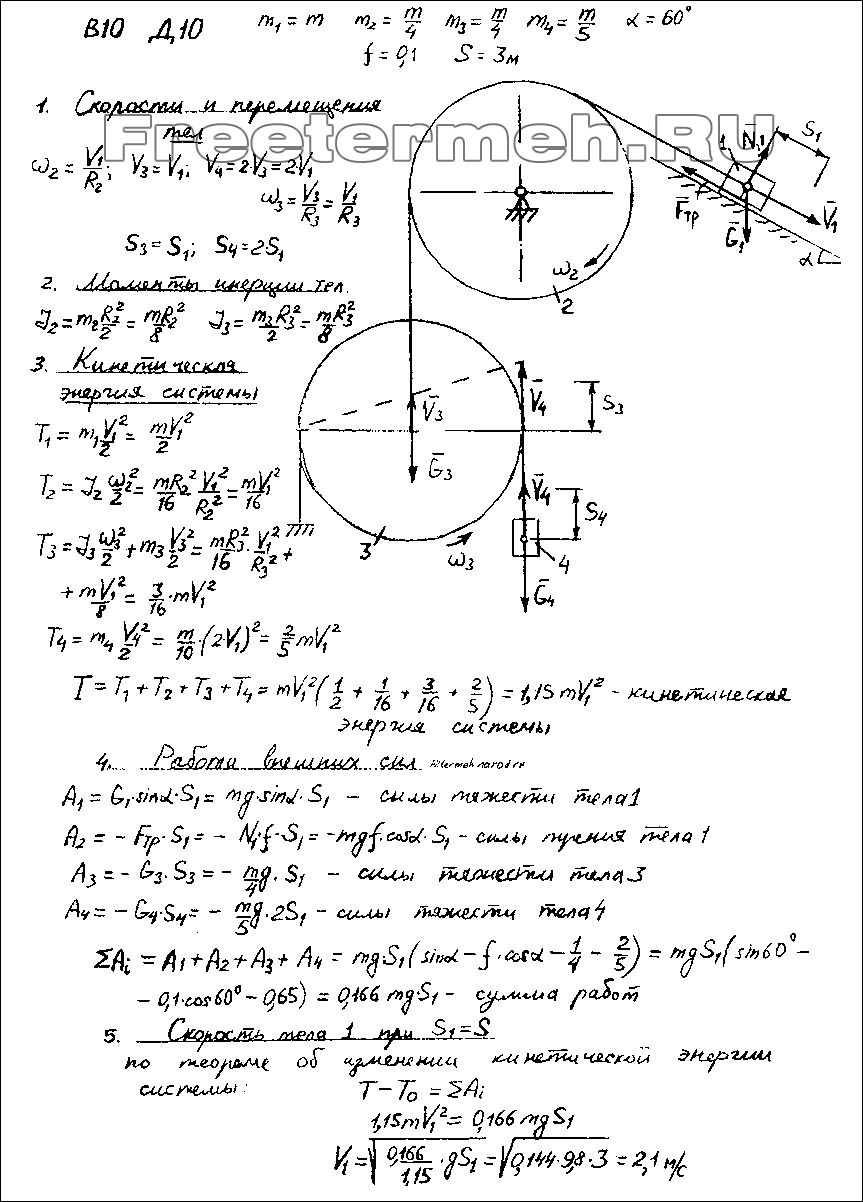 В10 Д10 m₁ = m m₂ = m/4 m₃ = m/4 m₄ = m/5 α = 60°
f = 0,1 S = 3м
1. Скорости и перемещения
тел
Freetermeh.RU
ω₂ = V₁/R₂; V₃ = V₁; V₄ = 2V₃ = 2V₁
ω₃ = V₃/R₃ = V₁/R₃
S₃ = S₁; S₄ = 2·S₁
2. Моменты инерции тел.
J₂ = m₂R₂²/2 = mR₂²/8 J₃ = m₃R₃²/2 = mR₃²/8
3. Кинетическая
энергия системы
T₁ = m₁V₁²/2 = mV₁²/2
T₂ = J₂ω₂²/2 = mR₂²/16 · V₁²/R₂² = mV₁²/16
T₃ = J₃ω₃²/2 + m₃V₃²/2 = mR₃²/16 · V₁²/R₃² +
+ mV₁²/8 = 3/16·mV₁²
T₄ = m₄V₄²/2 = m/10·(2·V₁)² = 2/5 mV₁²
1
N̄₁
S₁
F̄тр
Ḡ₁
V̄₁
α
ω₂
2
V̄₃
V̄₄
S₃
Ḡ₃
V̄₄
S₄
3
ω₃
4
Ḡ₄
T = T₁ + T₂ + T₃ + T₄ = mV₁²(1/2 + 1/16 + 3/16 + 2/5) = 1,15 mV₁² - кинетическая
энергия системы
4. Работа внешних сил
A₁ = G₁·sinα·S₁ = mg·sinα·S₁ - силы тяжести тела 1
A₂ = - Fтр·S₁ = - N₁·f·S₁ = -mgf·cosα·S₁ - силы трения тела 1
A₃ = - G₃·S₃ = - m/4 g·S₁ - силы тяжести тела 3
A₄ = - G₄·S₄ = - m/5 g·2S₁ - силы тяжести тела 4
ΣAᵢ = A₁ + A₂ + A₃ + A₄ = mg·S₁(sinα - f·cosα - 1/4 - 2/5) = mgS₁(sin60° -
- 0,1·cos60° - 0,65) = 0,166 mg·S₁ - сумма работ
5. Скорость тела 1 при S₁ = S
по теореме об изменении кинетической энергии
системы: T - T₀ = ΣAᵢ
1,15mV₁² = 0,166 mgS₁
V₁ = √(0,166/1,15·gS₁) = √(0,144·9,8·3) = 2,1 м/с